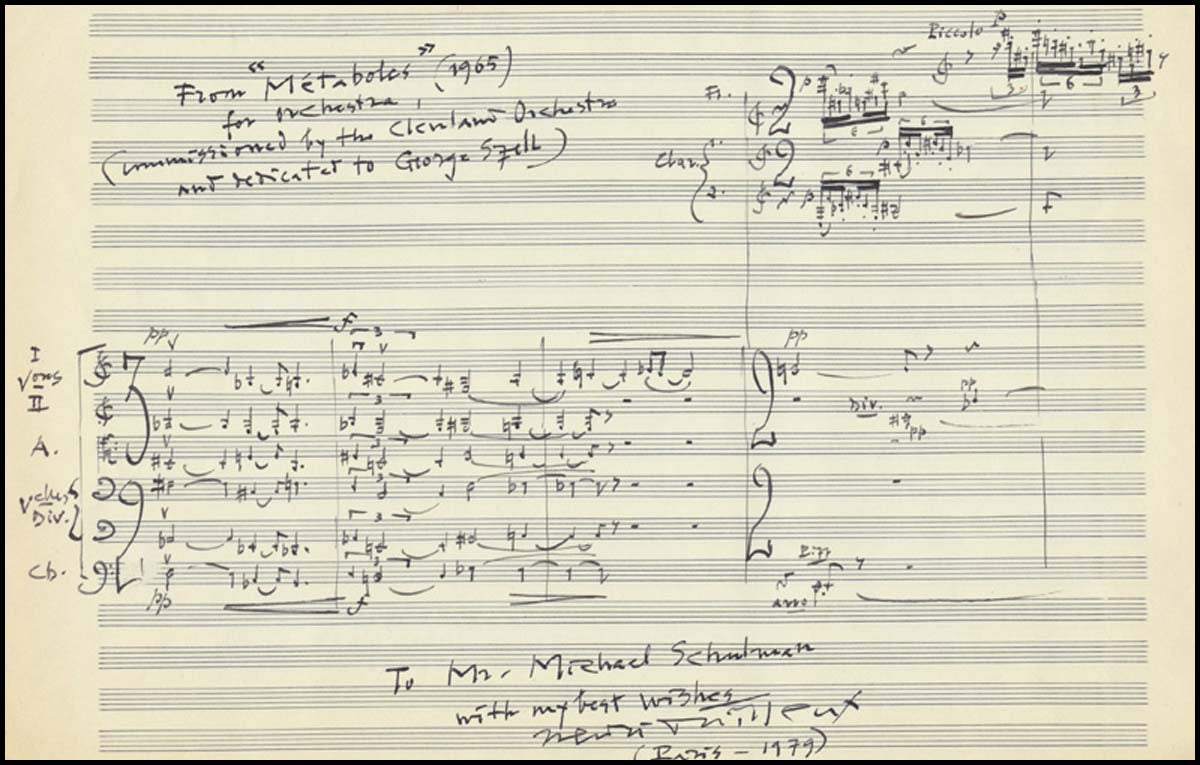 From "Métaboles" (1965)
for orchestra,
(commissioned by the Cleveland Orchestra
and dedicated to George Szell)
Piccolo
p
3
6
3
Fl.
2
p
6
Clar.
1.
2
p
2.
p
6
pp
f
3
pp
I
Vons
II
3
Div.
pp
pp
A.
3
Vclles
Div.
3
Cb.
3
Pizz
arco
pp
f
To Mr. Michael Schulman
with my best wishes
Henri Dutilleux
(Paris - 1979)